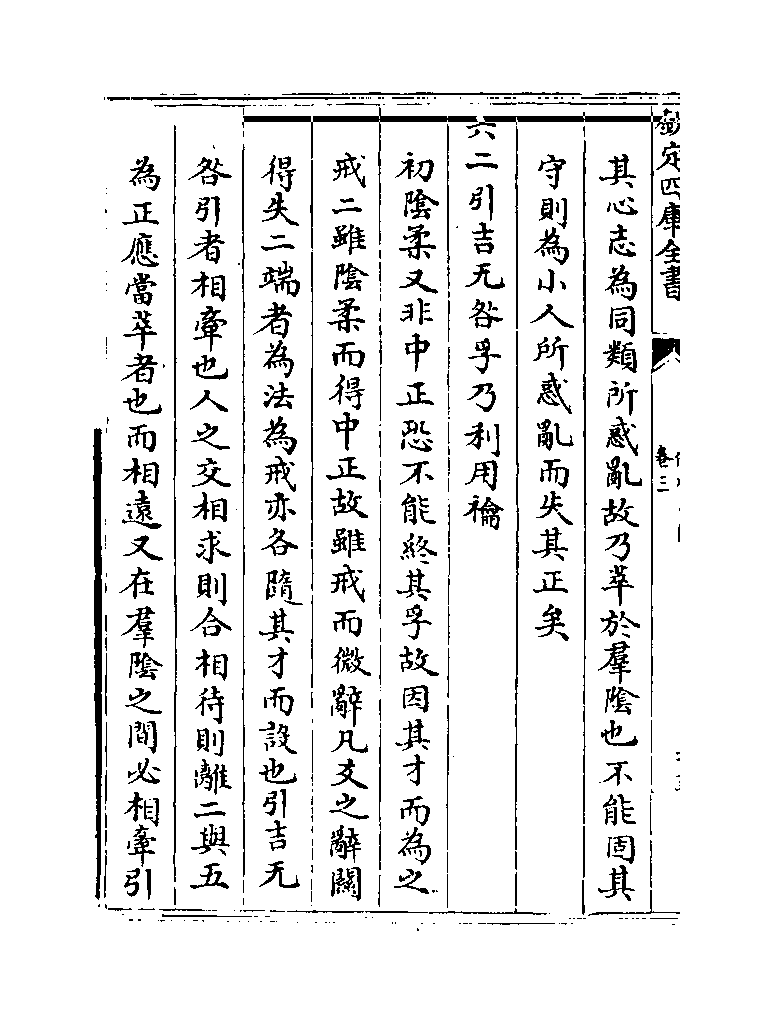 欽定四庫全書
卷三
其心志為同類所惑亂故乃萃於羣陰也不能固其
守則為小人所惑亂而失其正矣
六二引吉无咎孚乃利用禴
初陰柔又非中正恐不能終其孚故因其才而為之
戒二雖陰柔而得中正故雖戒而微辭凡爻之辭關
得失二端者為法為戒亦各隨其才而設也引吉无
咎引者相牽也人之交相求則合相待則離二與五
為正應當萃者也而相遠又在羣陰之間必相牽引